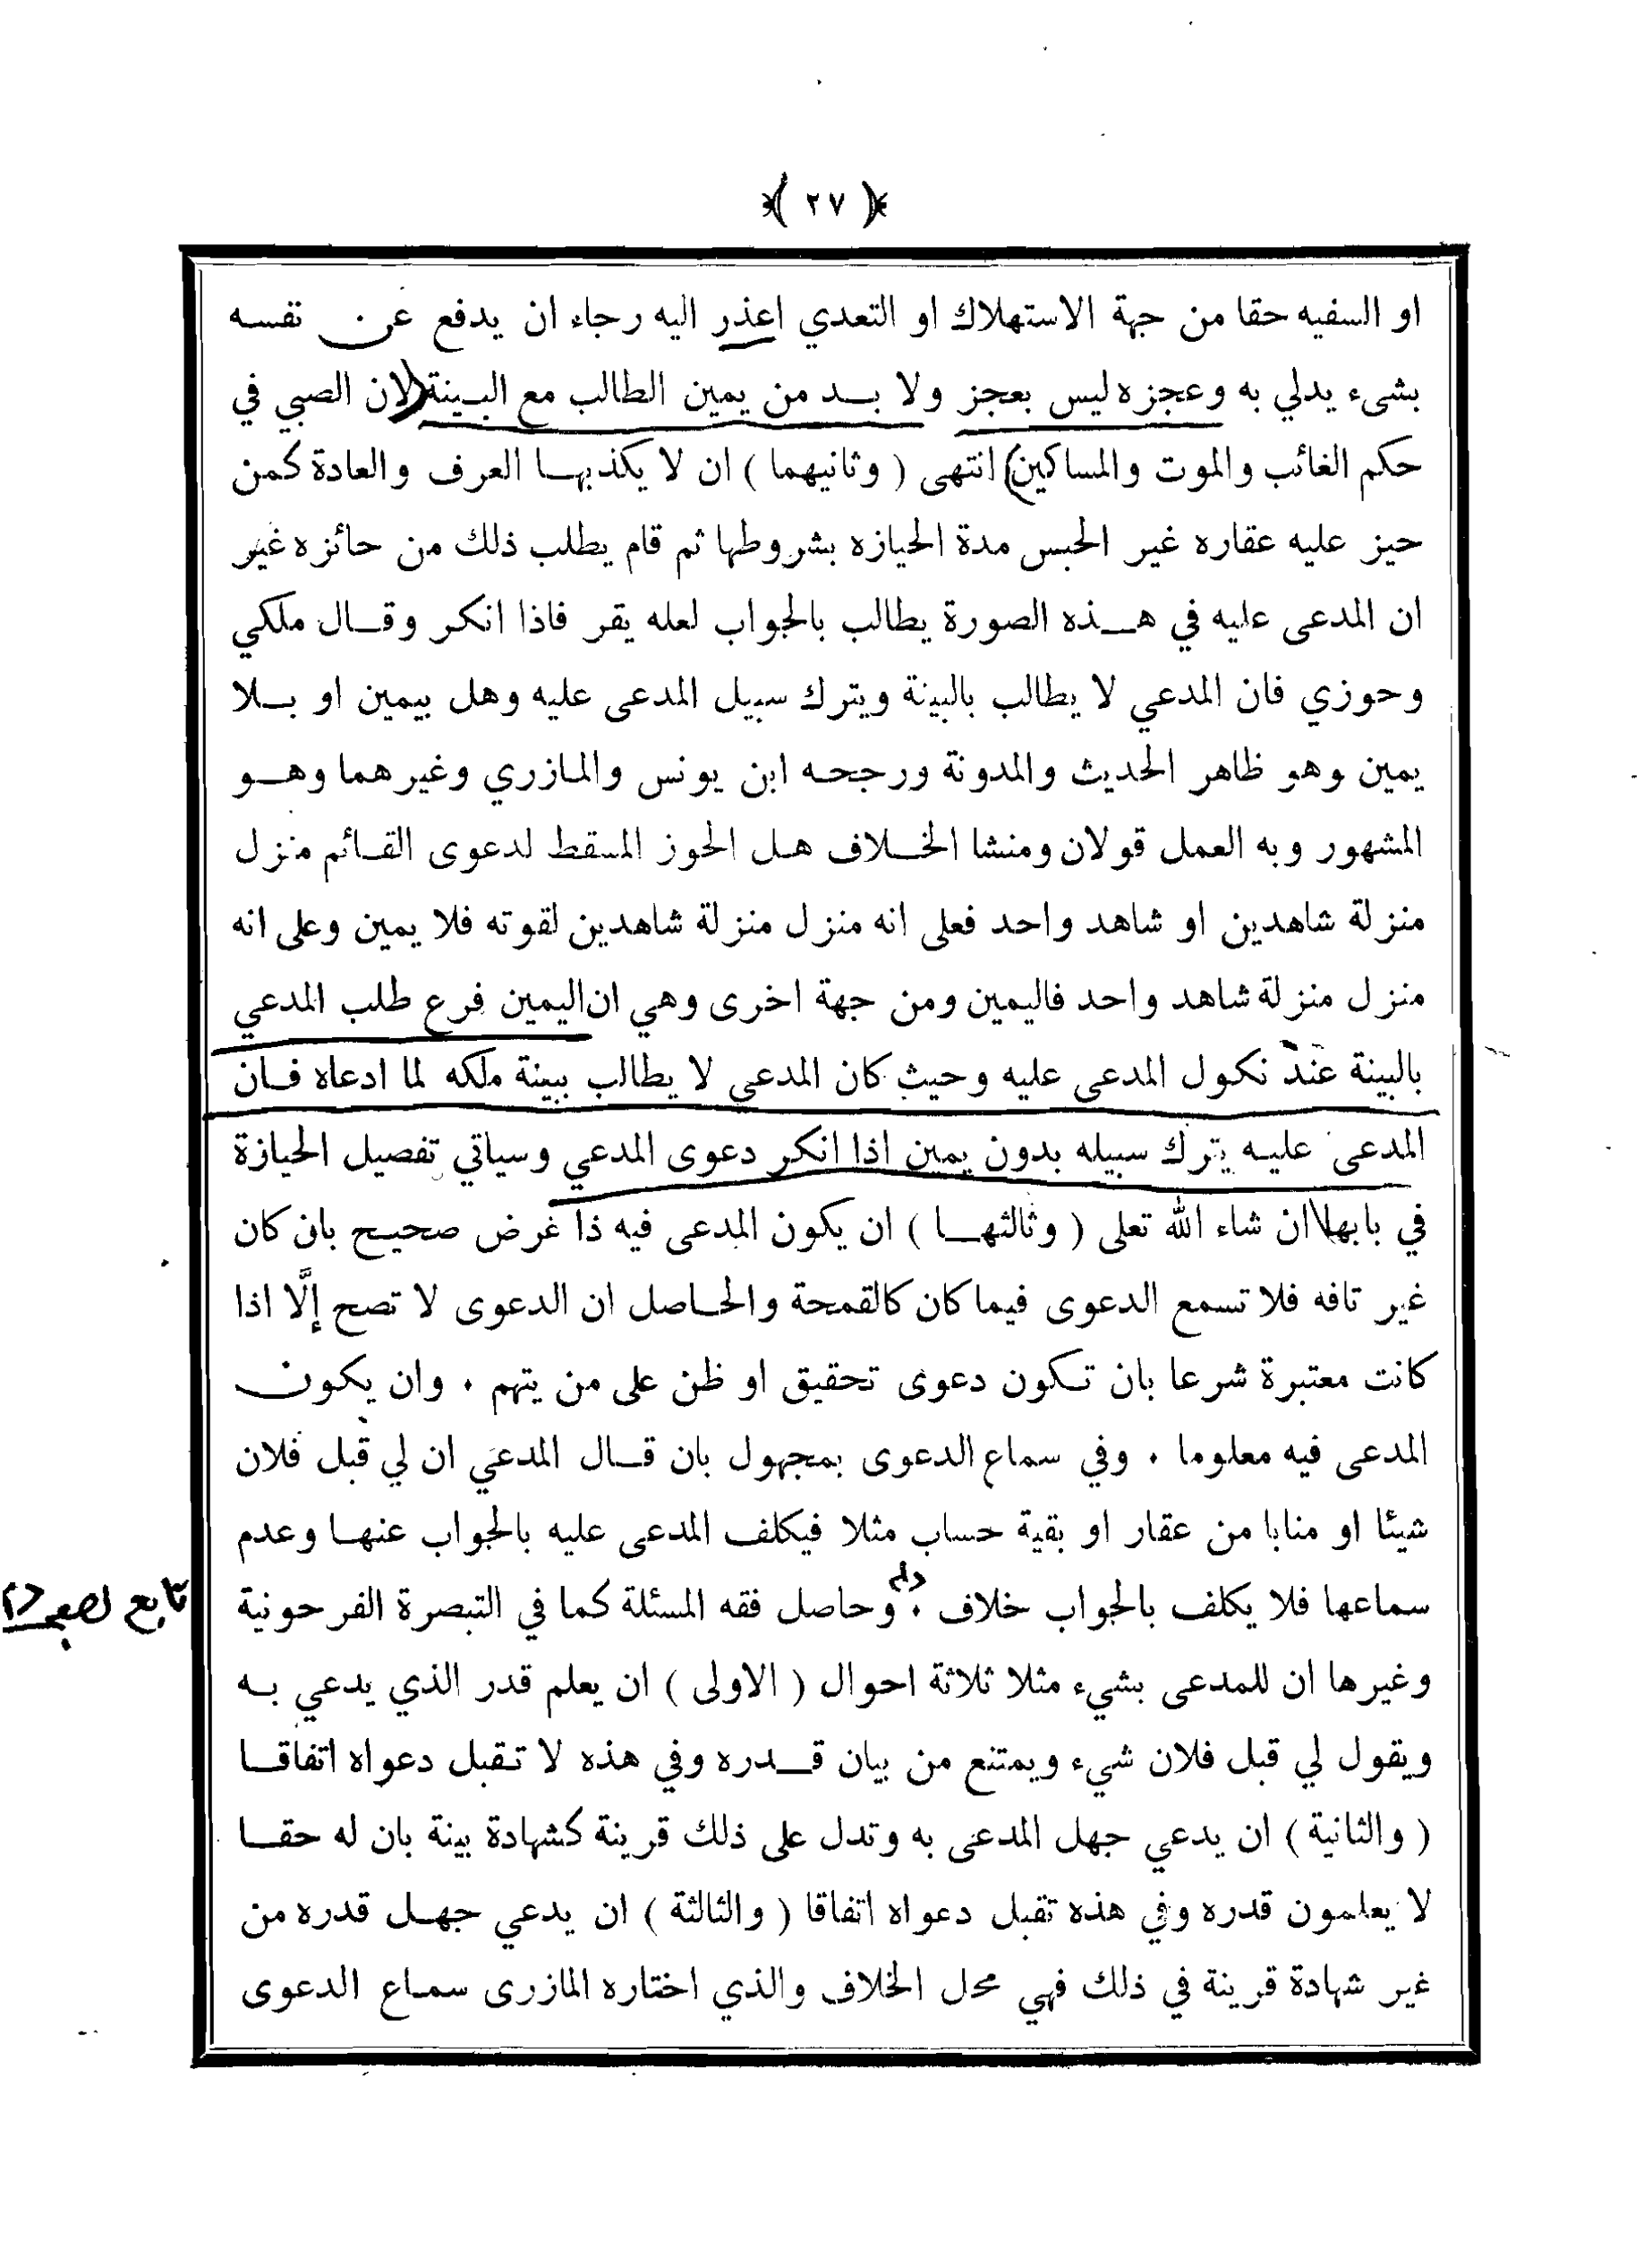 ﴿ ٢٧ ﴾
او السفيه حقا من جهة الاستهلاك او التعدي اعذر اليه رجاء ان يدفع عن نفسه
بشىء يدلي به وعجزه ليس بعجز ولا بد من يمين الطالب مع البينة (لان الصبي في
حكم الغائب والموت والمساكين) انتهى ( وثانيهما ) ان لا يكذبها العرف والعادة كمن
حيز عليه عقاره غير الحبس مدة الحيازه بشروطها ثم قام يطلب ذلك من حائزه غير
ان المدعى عليه في هذه الصورة يطالب بالجواب لعله يقر فاذا انكر وقال ملكي
وحوزي فان المدعي لا يطالب بالبينة ويترك سبيل المدعى عليه وهل بيمين او بلا
يمين وهو ظاهر الحديث والمدونة ورجحه ابن يونس والمازري وغيرهما وهو
المشهور وبه العمل قولان ومنشا الخلاف هل الحوز المسقط لدعوى القائم منزل
منزلة شاهدين او شاهد واحد فعلى انه منزل منزلة شاهدين لقوته فلا يمين وعلى انه
منزل منزلة شاهد واحد فاليمين ومن جهة اخرى وهي ان اليمين فرع طلب المدعي
بالبينة عند نكول المدعى عليه وحيث كان المدعي لا يطالب ببينة ملكه لما ادعاه فان
المدعى عليه يترك سبيله بدون يمين اذا انكر دعوى المدعي وسياتي تفصيل الحيازة
في بابها ان شاء الله تعلى ( وثالثها ) ان يكون المدعى فيه ذا غرض صحيح بان كان
غير تافه فلا تسمع الدعوى فيما كان كالقمحة والحاصل ان الدعوى لا تصح إلَّا اذا
كانت معتبرة شرعا بان تكون دعوى تحقيق او ظن على من يتهم . وان يكون
المدعى فيه معلوما . وفي سماع الدعوى بمجهول بان قال المدعي ان لي قبل فلان
شيئا او منابا من عقار او بقية حساب مثلا فيكلف المدعى عليه بالجواب عنها وعدم
سماعها فلا يكلف بالجواب خلاف . وحاصل فقه المسئلة كما في التبصرة الفرحونية
تابع لصفحة
وغيرها ان للمدعى بشيء مثلا ثلاثة احوال ( الاولى ) ان يعلم قدر الذي يدعي به
ويقول لي قبل فلان شيء ويمتنع من بيان قدره وفي هذه لا تقبل دعواه اتفاقا
( والثانية ) ان يدعي جهل المدعى به وتدل على ذلك قرينة كشهادة بينة بان له حقا
لا يعلمون قدره وفي هذه تقبل دعواه اتفاقا ( والثالثة ) ان يدعي جهل قدره من
غير شهادة قرينة في ذلك فهي محل الخلاف والذي اختاره المازرى سماع الدعوى